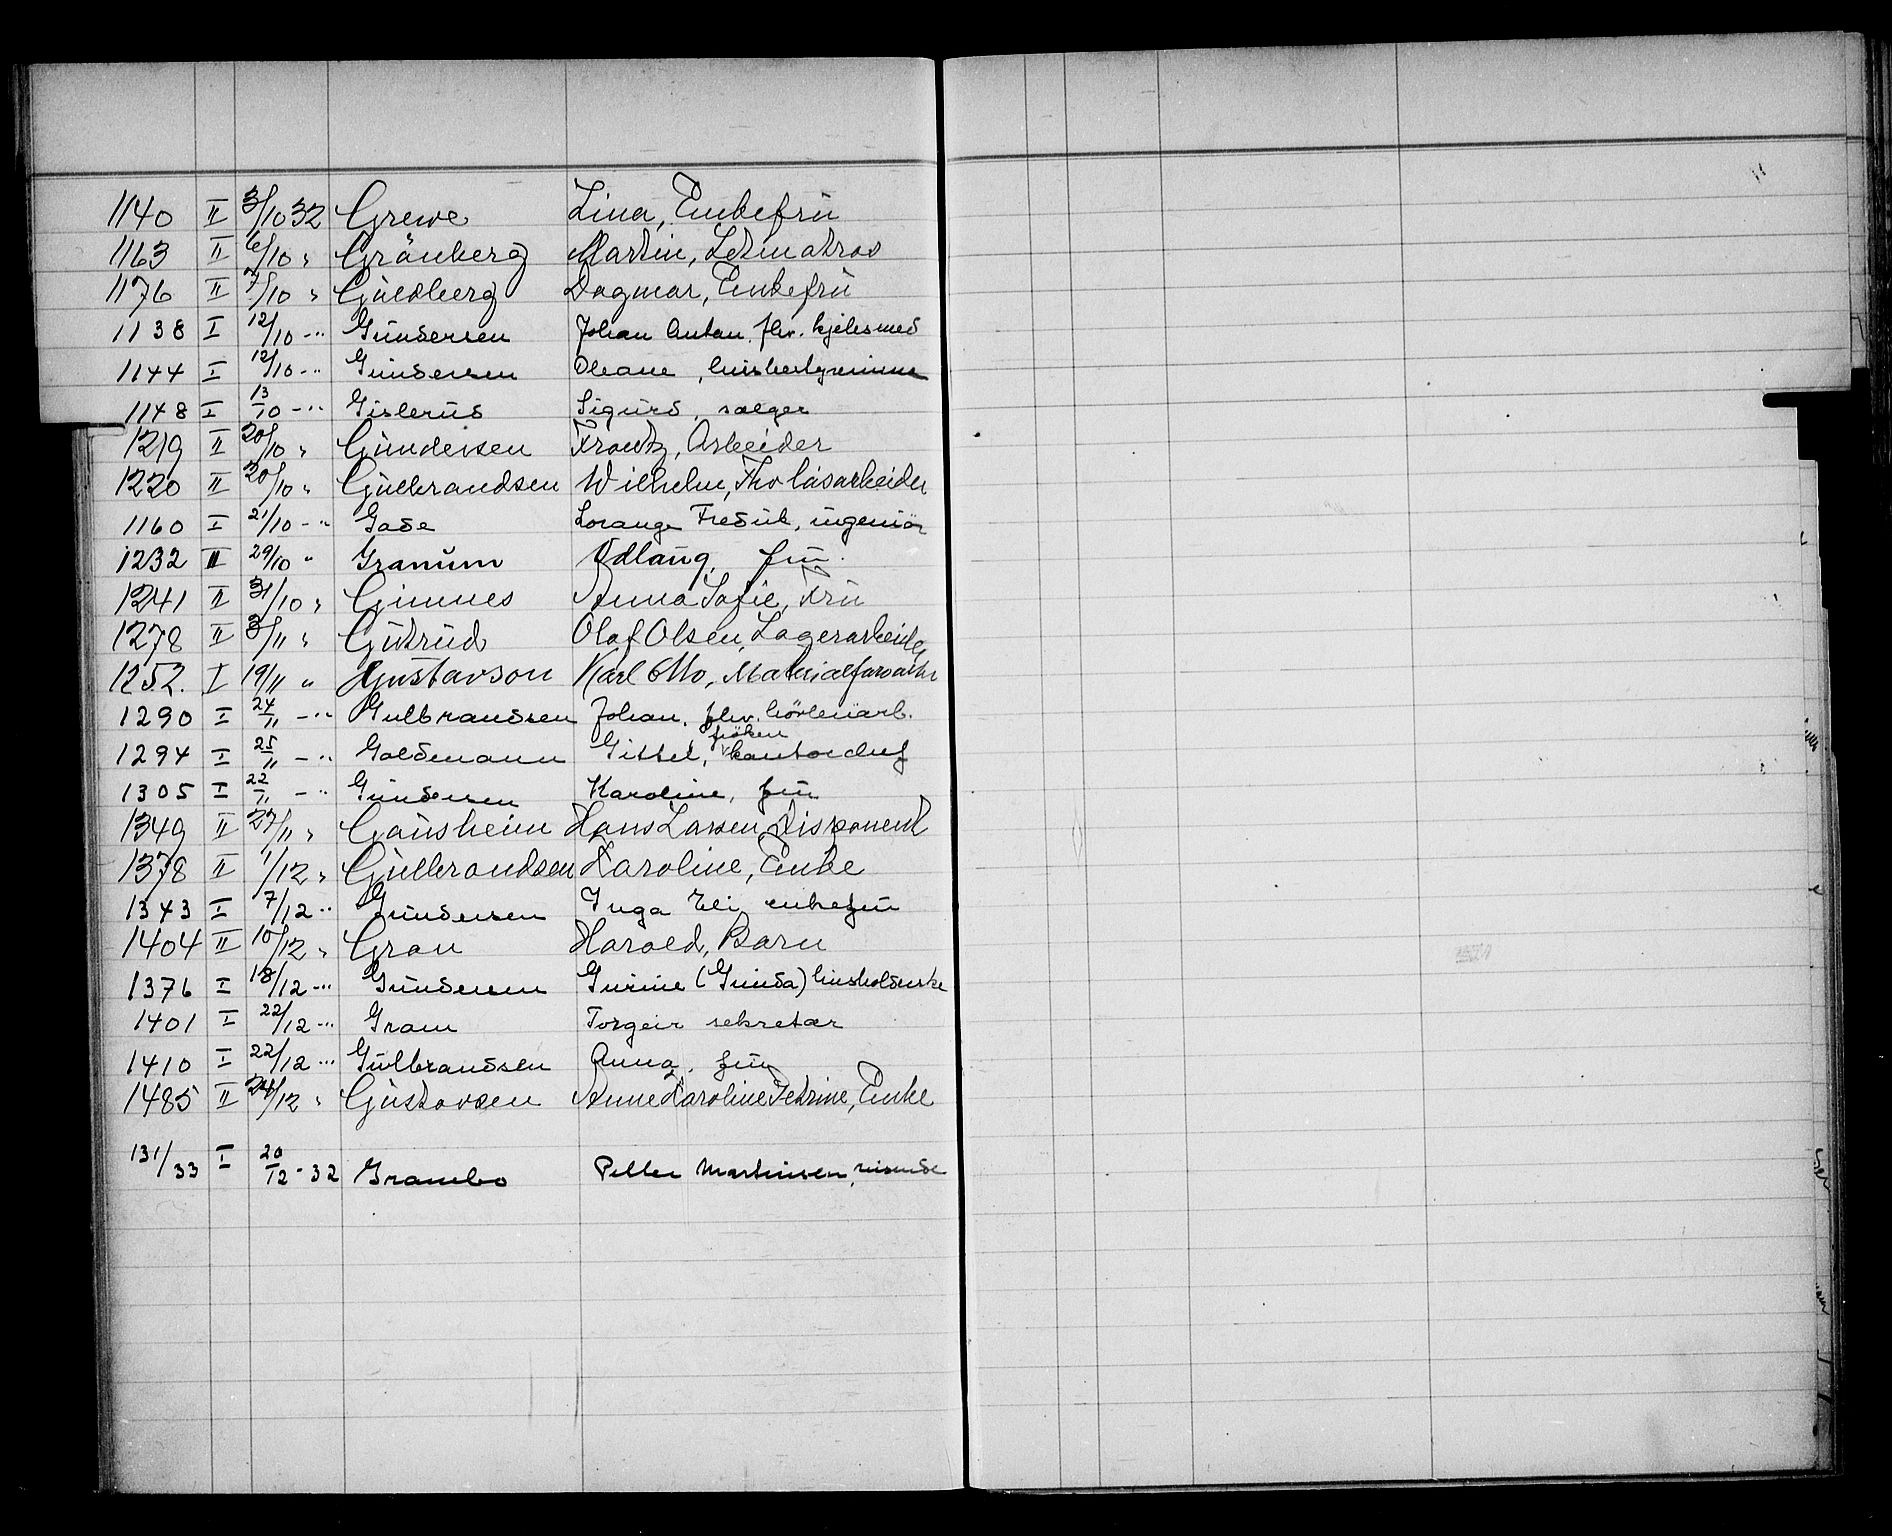 1140 II 3/10 32 Grewe Lina, Enkefru
1163 II 6/10 " Grönberg Martin, Letmatros
1176 II 7/10 " Guldberg Dagmar, Enkefru
1138 I 12/10 -"- Gundersen Johan Anton, fhv. kjelesmed
1144 I 12/10 -"- Gundersen Oleane,
1148 I 13/10 -"- Gislerud Sigurd, sælger
1219 II 20/10 " Gundersen Frantz, Arbeider
1220 II 20/10 " Gulbrandsen Wilhelm, Fhv låsarbeider
1160 I 21/10 -"- Gade Lorange Fredrik, ingeniør
1232 II 29/10 " Granum Odlaug, fru.
1241 II 31/10 " Gimnes Anna Sofie, Fru
1278 II 3/11 " Gutrud Olaf Olsen, Lagerarbeider
1252. I 19/11 " Gustavson Karl Otto, Materialforvalter
1290 I 24/11 -"- Gulbrandsen Johan, fhv.
frøken
1294 I 25/11 -"- Goldemann Gittel, kontorchef
1305 I 22/11 -"- Gundersen Karoline, fru
1349 II 27/11 " Gausheim Hans Larsen, Disponent
1378 II 1/12 " Gulbrandsen Karoline, Enke
1343 I 7/12 -"- Gundersen Inga Eli, enkefru
1404 II 10/12 " Gran Harald, Barn
1376 I 18/12 -"- Gundersen Gurine (Gunda)
1401 I 22/12 -"- Gram Torgeir sekretær
1410 I 22/12 -"- Gulbrandsen Anna, fru
1485 II 24/12 " Gustavsen Anne Karoline Petrine, Enke
131/33 I 20/12-32 Grambo Petter Martinsen, reisende